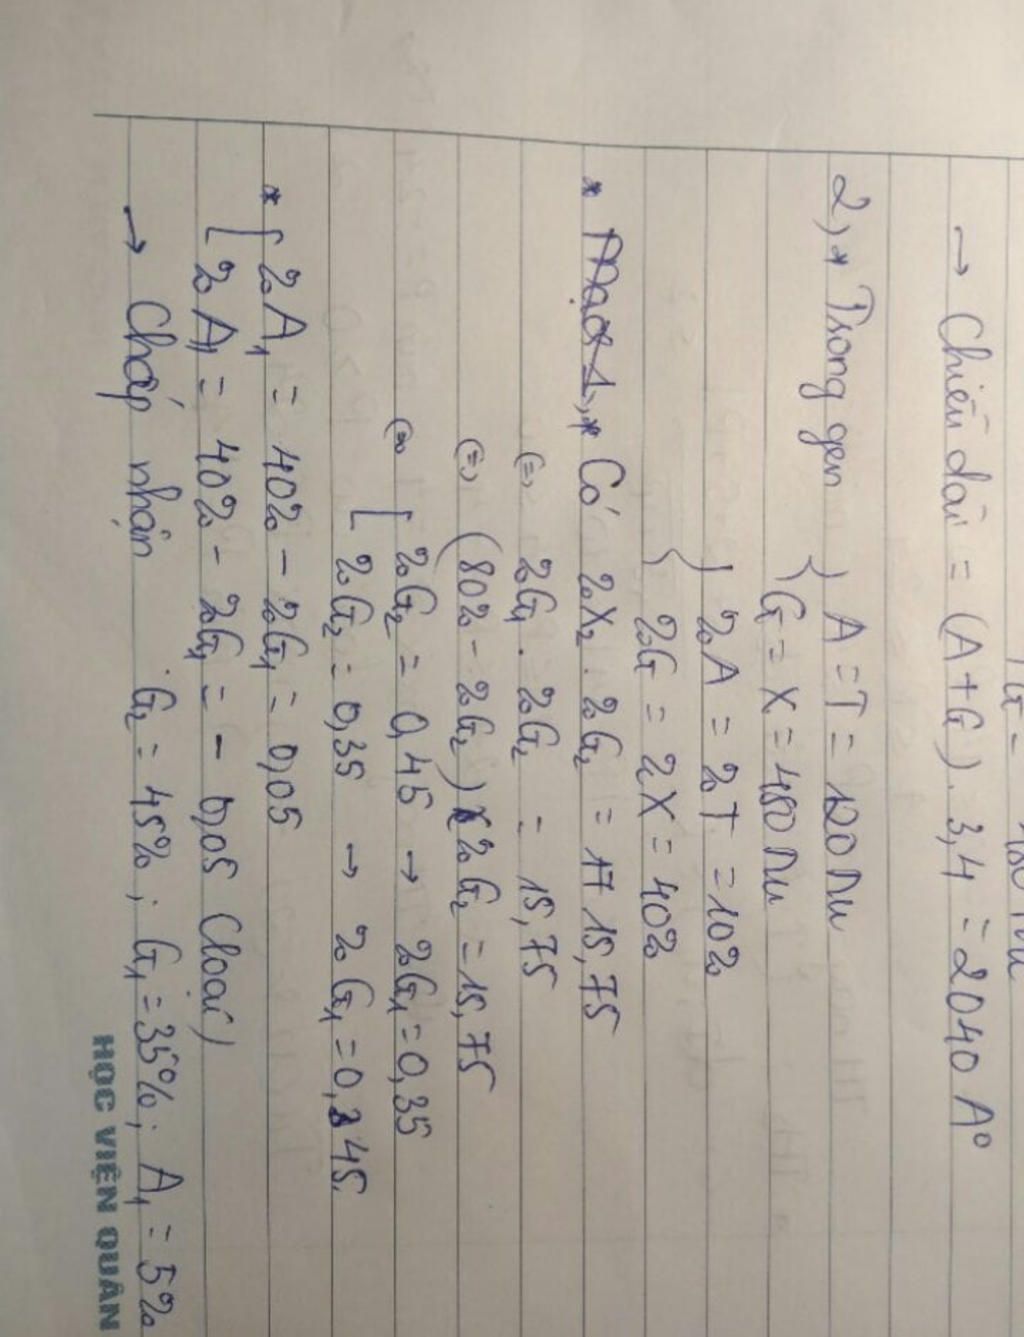 → Chiều dài = (A+G). 3,4 = 2040 A°
2, * Trong gen { A = T = 120 Nu
G = X = 480 Nu
{ %A = %T = 10%
%G = %X = 40%
* Mạch 1, * Có %X₂ . %G₂ = 17 15,75
(=) %G₁ . %G₂ = 15,75
(=) (80% - %G₂) x %G₂ = 15,75
(=) [ %G₂ = 0,45 → %G₁ = 0,35
%G₂ = 0,35 → %G₁ = 0,45.
* [ %A₁ = 40% - %G₁ = 0,05
%A₁ = 40% - %G₁ = - 0,05 (loại)
→ Chấp nhận G₂ = 45%; G₁ = 35%; A₁ = 5%
HỌC VIỆN QUÂN